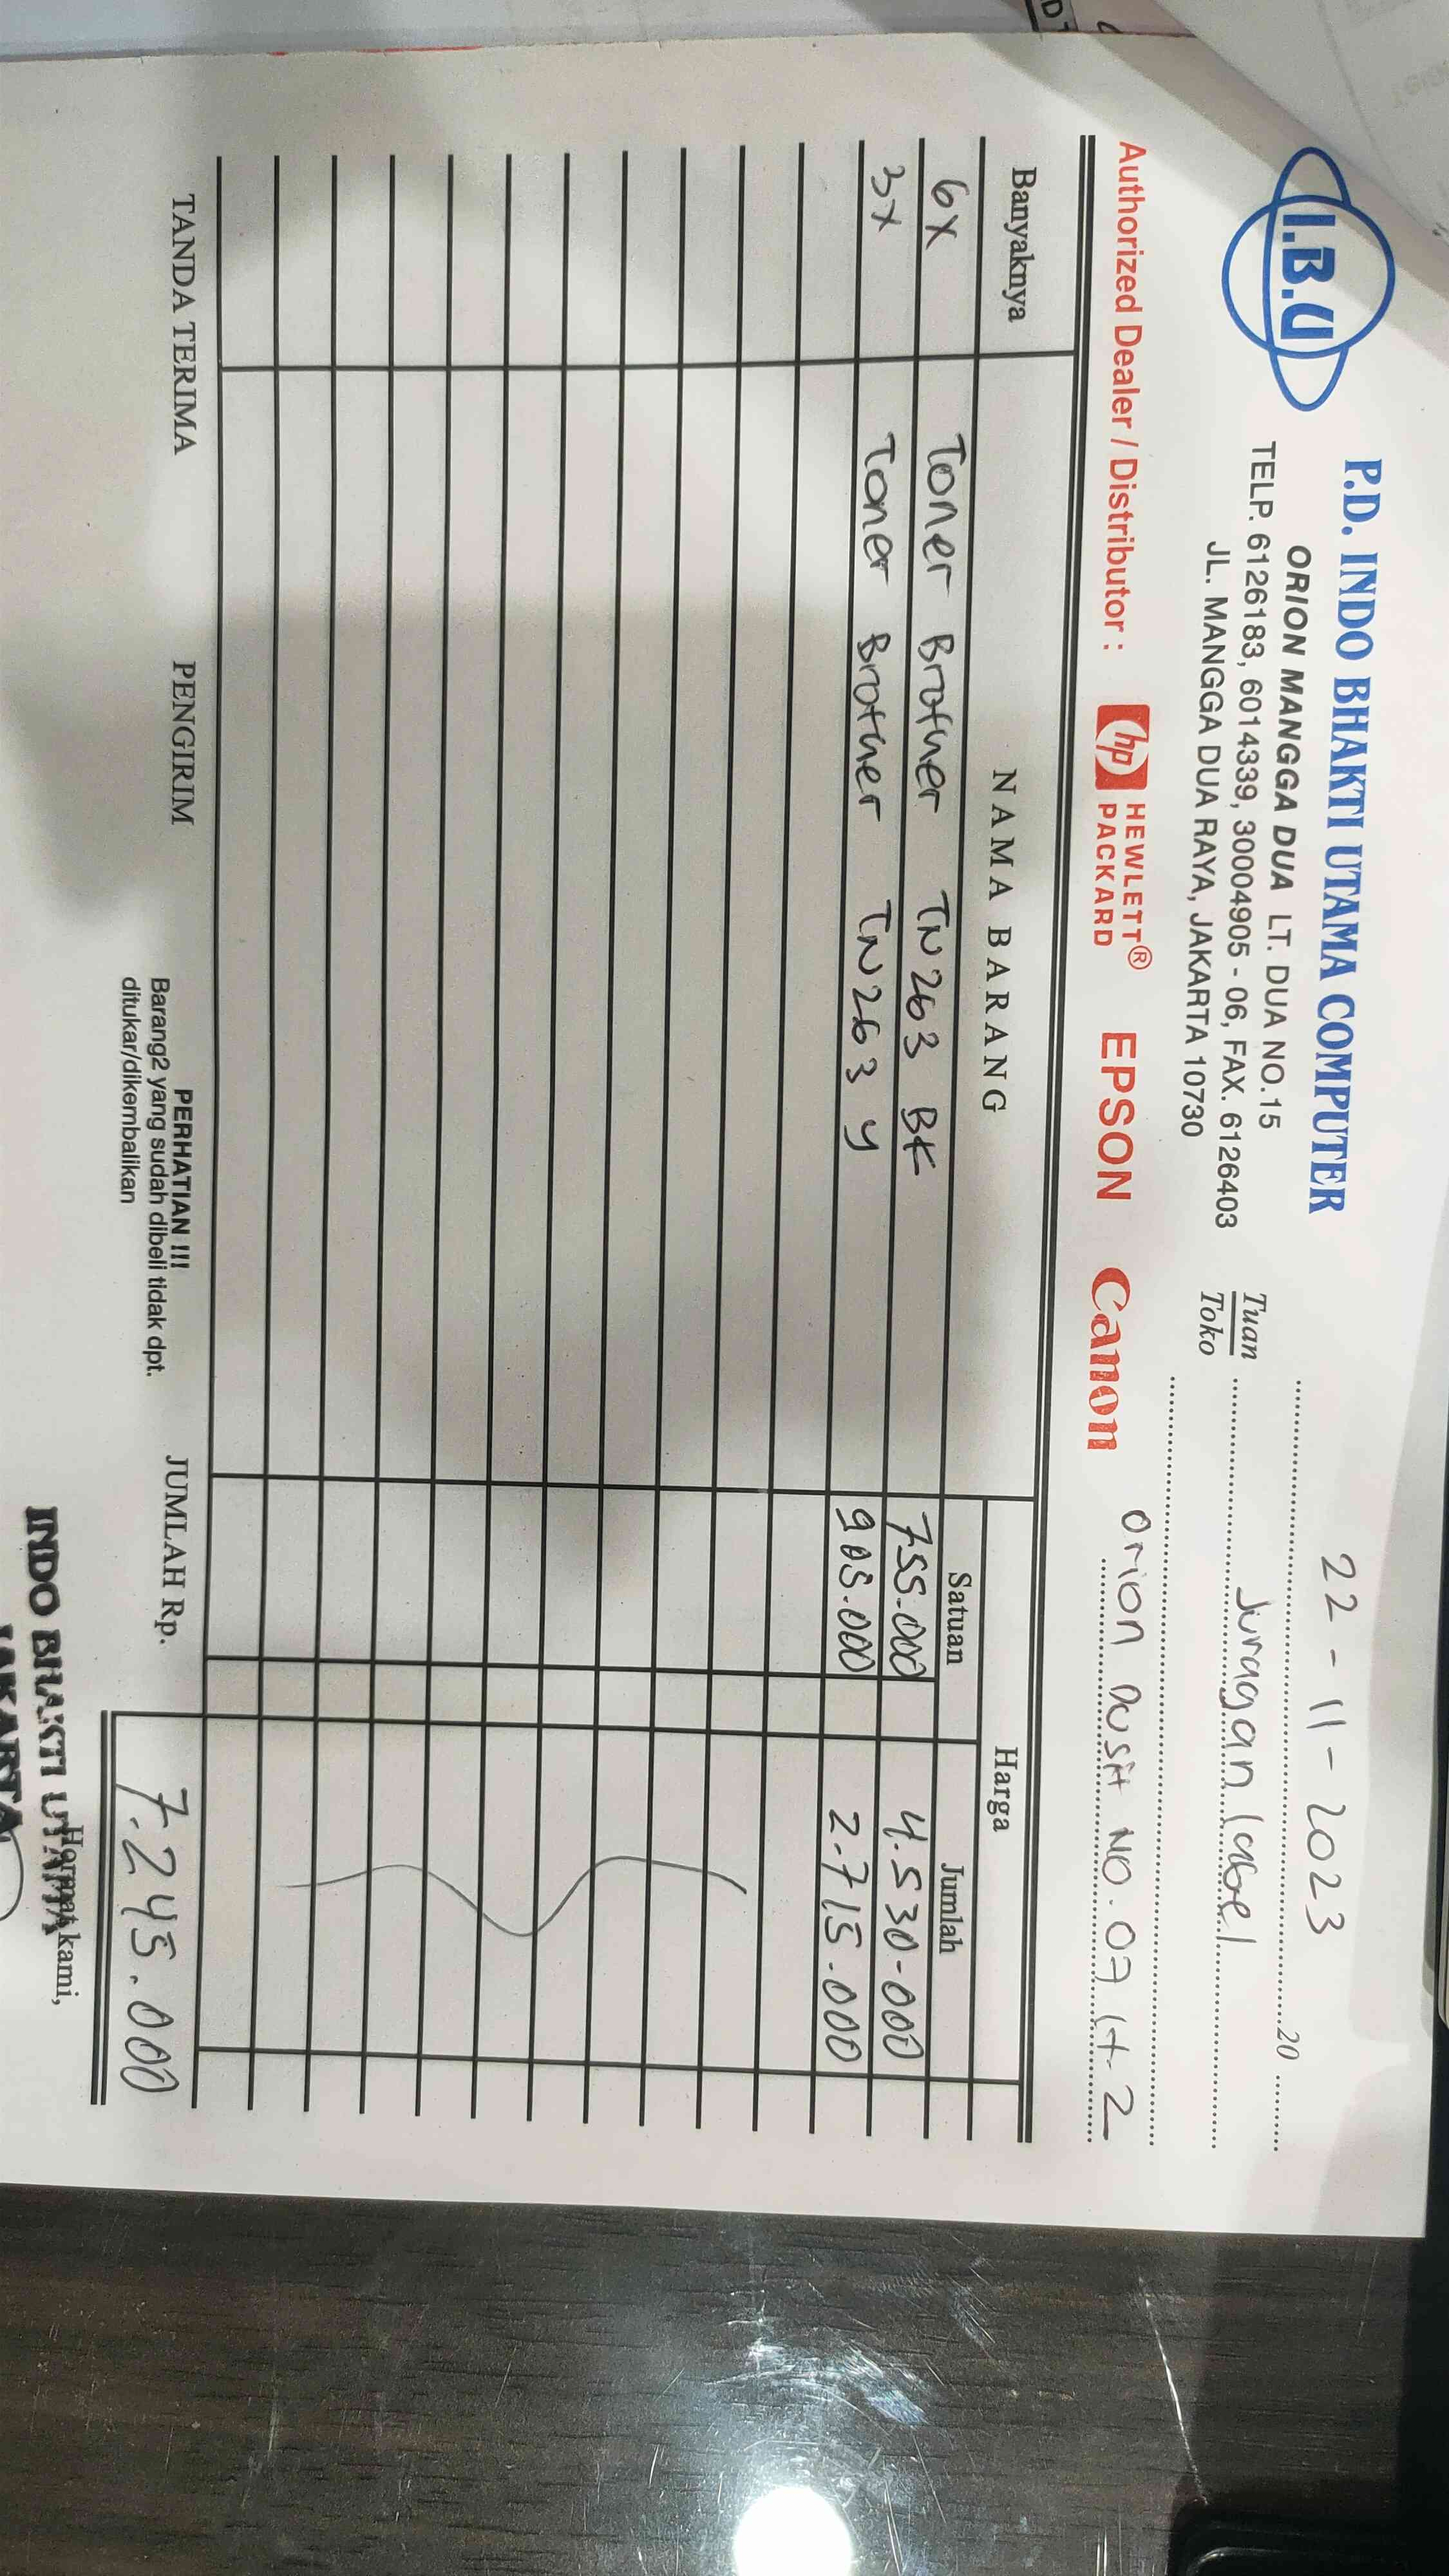 I.B.U
P.D. INDO BHAKTI UTAMA COMPUTER
ORION MANGGA DUA LT. DUA NO.15
TELP. 6126183, 6014339, 30004905 - 06, FAX. 6126403
JL. MANGGA DUA RAYA, JAKARTA 10730
22 - 11 - 2023
20
Tuan
Toko
Juragan label
Orion Dusit NO. 07 lt. 2
Authorized Dealer / Distributor : hp HEWLETT® PACKARD EPSON Canon
Banyaknya NAMA BARANG Harga
Satuan Jumlah
6x Toner Brother TN263 BK 755.000 4.530.000
3x Toner Brother TN263 Y 905.000 2.715.000
TANDA TERIMA PENGIRIM
PERHATIAN !!!
Barang2 yang sudah dibeli tidak dpt.
ditukar/dikembalikan
JUMLAH Rp. 7.245.000
Hormat kami,
INDO BHAKTI UTAMA
JAKARTA